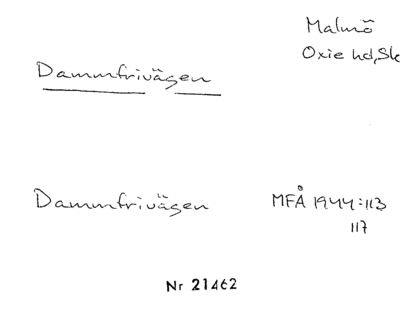 Malmö
Oxie hd, Sk
Dammfrivägen
Dammfrivägen MFÅ 1944:113
117
Nr 21462